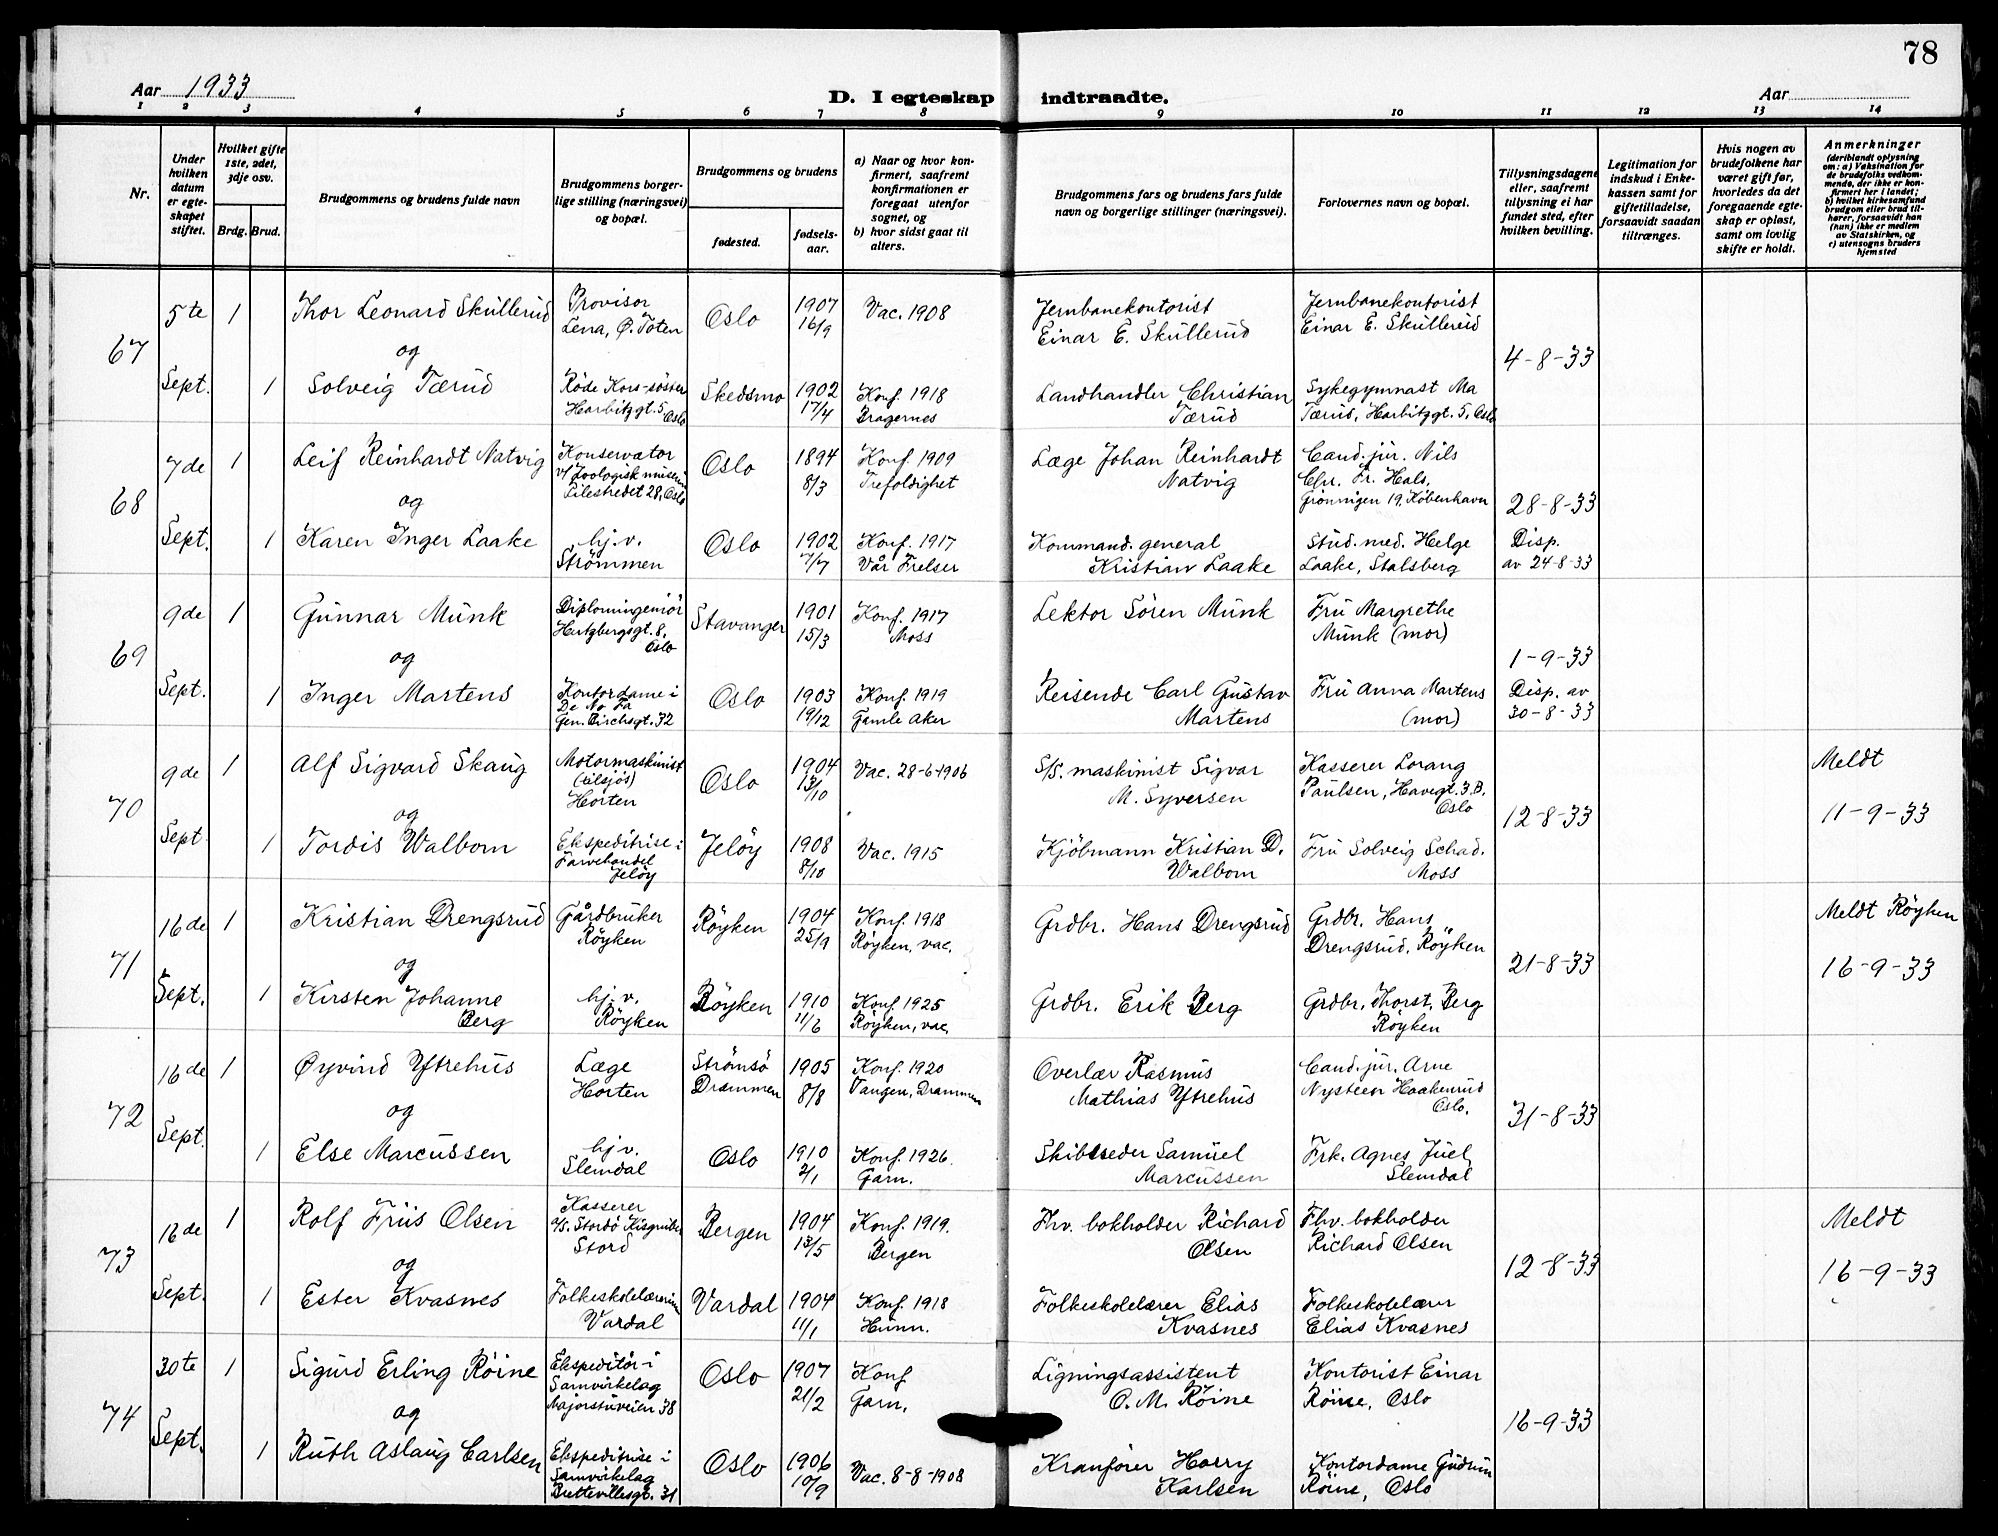 78
Aar 1933
D. I egteskap indtraadte.
Aar
1 2 3 4 5 6 7 8 9 10 11 12 13 14
Nr.
Under hvilken datum er egteskapet stiftet.
Hvilket gifte 1ste, 2det, 3dje osv.
Brdg. Brud.
Brudgommens og brudens fulde navn
Brudgommens borgerlige stilling (næringsvei) og bopæl.
Brudgommens og brudens
fødested.
fødselsaar.
a) Naar og hvor konfirmert, saafremt konfirmationen er foregaat utenfor sognet, og
b) hvor sidst gaat til alters.
Brudgommens fars og brudens fars fulde navn og borgerlige stillinger (næringsvei).
Forlovernes navn og bopæl.
Tillysningsdagene eller, saafremt tillysning ei har fundet sted, efter hvilken bevilling.
Legitimation for indskud i Enkekassen samt for giftetilladelse, forsaavidt saadan tiltrænges.
Hvis nogen av brudefolkene har været gift før, hvorledes da det foregaaende egteskap er opløst, samt om lovlig skifte er holdt.
Anmerkninger
(deriblandt oplysning om: a) Vaksination for de brudefolks vedkommende, der ikke er konfirmert her i landet;
b) hvilket kirkesamfund brudgom eller brud tilhører, forsaavidt han (hun) ikke er medlem av Statskirken, og
c) utensogns bruders hjemsted
67
5te Sept.
1 Thor Leonard Skullerud
Provisor
Lena, Ø. Toten
Oslo
1907
16/9
Vac. 1908
Jernbanekontorist
Einar E. Skullerud
Jernbanekontorist
Einar E. Skullerud
4-8-33
og
1 Solveig Tærud
Røde Kors-søster
Harbitzgt. 5 Oslo
Skedsmo
1902
17/4
Konf. 1918
Bragernes
Landhandler Christian
Tærud
Sykegymnast Ma
Tærud, Harbitzgt. 5, Oslo
68
7de Sept.
1 Leif Reinhardt Natvig
Konservator
v/ Zoologisk museum
Pilestredet 28, Oslo
Oslo
1894
8/3
Konf. 1909
Trefoldighet
Læge Johan Reinhardt
Natvig
Cand. jur. Nils
Chr. Fr. Hals,
Grönnigen 19, Köbenhavn
28-8-33
og
1 Karen Inger Laake
hj. v.
Strömmen
Oslo
1902
7/7
Konf. 1917
Vår Frelser
Kommand. general
Kristian Laake
Stud. med. Helge
Laake, Stalsberg
Disp.
av 24-8-33
69
9de Sept.
1 Gunnar Munk
Diplomingeniör
Hertzbergsgt. 8,
Oslo
Stavanger
1901
15/3
Konf. 1917
Moss
Lektor Sören Munk
Fru Margrethe
Munk (mor)
1-9-33
og
1 Inger Martens
Kontordame i
De No Fa
Gen. Birchsgt. 32
Oslo
1903
19/12
Konf. 1919
Gamle Aker
Reisende Carl Gustav
Martens
Fru Anna Martens
(mor)
Disp. av
30-8-33
70
9de Sept.
1 Alf Sigvard Skaug
Motormaskinist
(tilsjøs)
Horten
Oslo
1904
13/10
Vac. 28-6-1906
S/S. maskinist Sigvar
M. Syversen
Kasserer Lorang
Paulsen, Havegt. 3.B.
Oslo
12-8-33
Meldt
11-9-33
og
1 Tordis Walbom
Ekspeditrise i
Farvehandel
Jelöy
Jelöy
1908
8/10
Vac. 1915
Kjöbmann Kristian D.
Walbom
Fru Solveig Schad.
Moss
71
16de Sept.
1 Kristian Drengsrud
Gårdbruker
Röyken
Röyken
1904
25/9
Konf. 1918
Röyken, vac.
Grdbr. Hans Drengsrud
Grdbr. Hans
Drengsrud, Röyken
21-8-33
Meldt Röyken
16-9-33
og
1 Kirsten Johanne
Berg
hj. v.
Röyken
Röyken
1910
11/6
Konf. 1925
Röyken, vac.
Grdbr. Erik Berg
Grdbr. Thorst. Berg
Röyken
72
16de Sept.
1 Øyvind Ytrehus
Læge
Horten
Strömsö
Drammen
1905
8/8
Konf. 1920
Tangen, Drammen
Overlær Rasmus
Mathias Ytrehus
Cand. jur. Arne
Nysteen Haakenrud
Oslo.
31-8-33
og
1 Else Marcussen
hj v.
Slemdal
Oslo
1910
2/1
Konf. 1926.
Garn.
Skibsreder Samuel
Marcussen
Frk. Agnes Juel
Slemdal
73
16de Sept.
1 Rolf Friis Olsen
Kasserer
a/s. Stordö Kisgruber
Stord
Bergen
1904
13/5
Konf. 1919.
Bergen
Fhv. bokholder Richard
Olsen
Fhv. bokholder
Richard Olsen
12-8-33
Meldt
16-9-33
og
1 Ester Kvasnes
Folkeskolelærerinne
Vardal
Vardal
1904
11/1
Konf. 1918
Hunn.
Folkeskolelærer Elias
Kvasnes
Folkeskolelærer
Elias Kvasnes
74
30te Sept.
1 Sigurd Erling Röine
Ekspeditör i
Samvirkelag
Majorstuveien 38
Oslo
1907
21/2
Konf
Garn.
Ligningsassistent
O. M. Röine
Kontorist Einar
Röine, Oslo
16-9-33
og
1 Ruth Aslaug Carlsen
Ekspeditrise i
Samvirkelag
Brettevillesgt. 31
Oslo
1906
10/9
Vac. 8-8-1908
Kranförer Harry
Karlsen
Kontordame Gudrun
Röine, Oslo